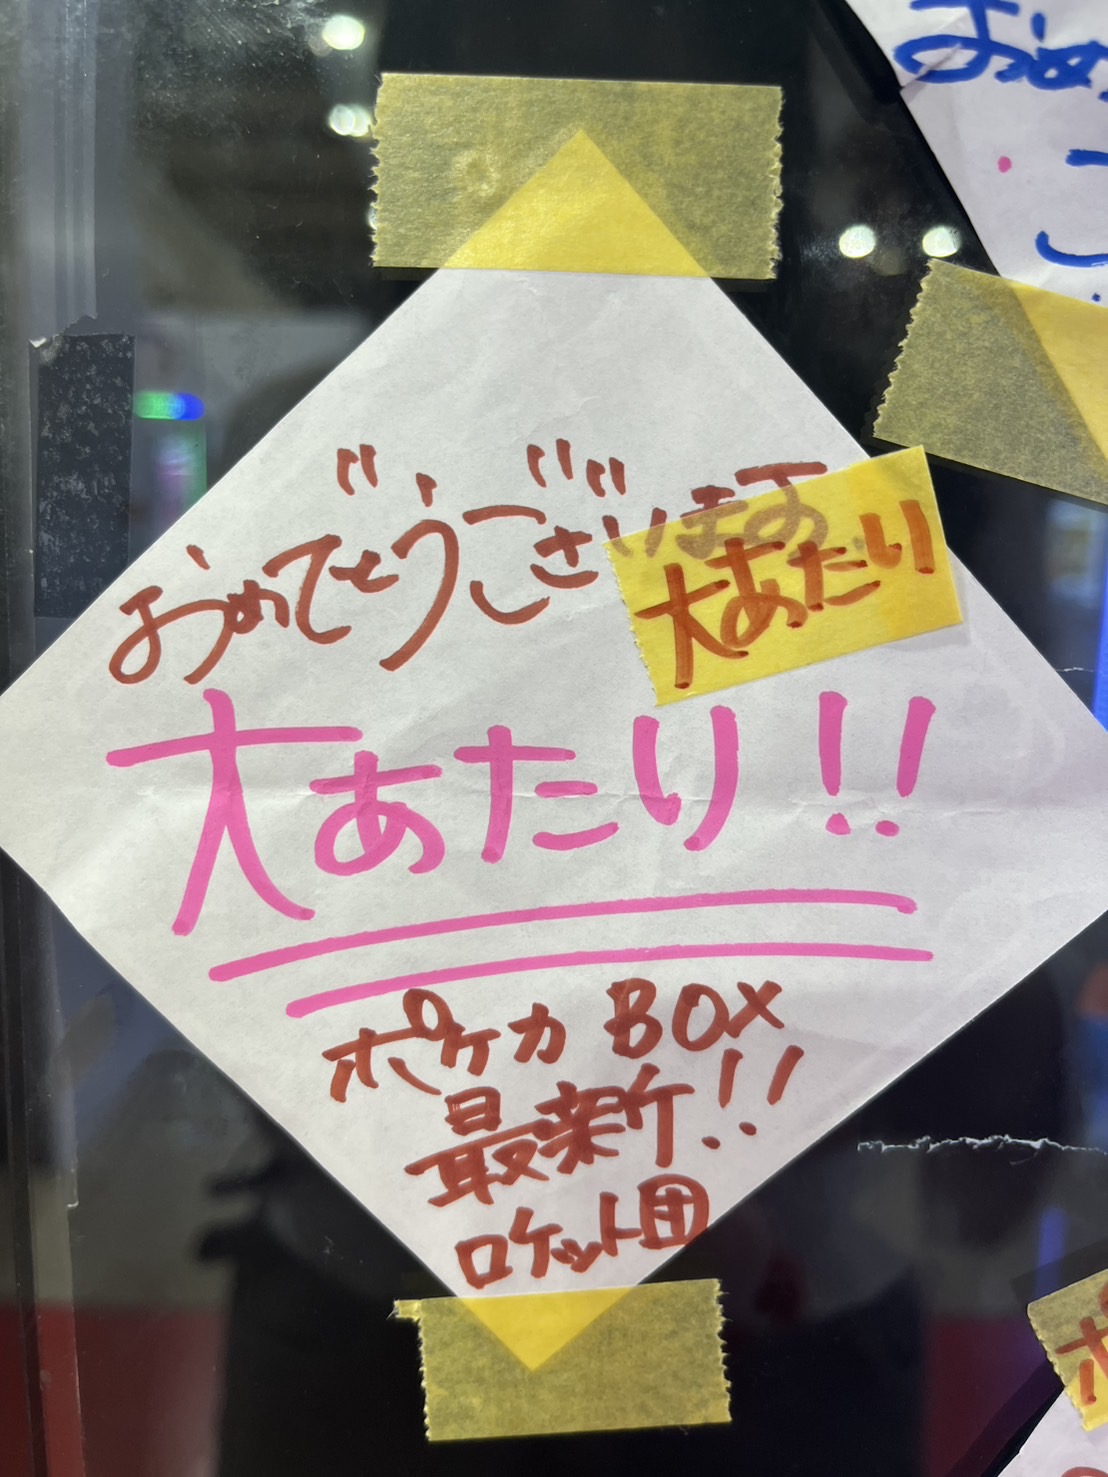 おめでとうございます
大あたり
大あたり!!
ポケカ BOX
最新!!
ロケット団
おめ